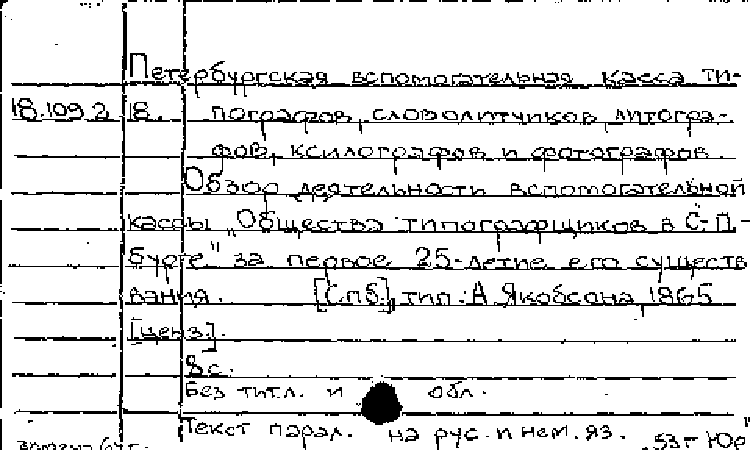 Петербургская вспомогательная касса ти-
18.109.2 18. пографов, словолитчиков, литогра-
фов, ксилографов и фотографов.
Обзор деятельности вспомогательной
кассы „Общества типографщиков в С.-П.-
бурге" за первое 25-летие его существ
вания. [Спб.], тип. А Якобсона, 1865
[ценз].
8 с.
Без титл. и обл.
Текст парал. на рус. и нем. яз.